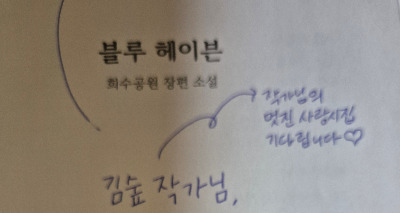 블루 헤이븐
희수공원 장편 소설
작가님의
멋진 사랑시집
기다립니다♡
김숲 작가님,